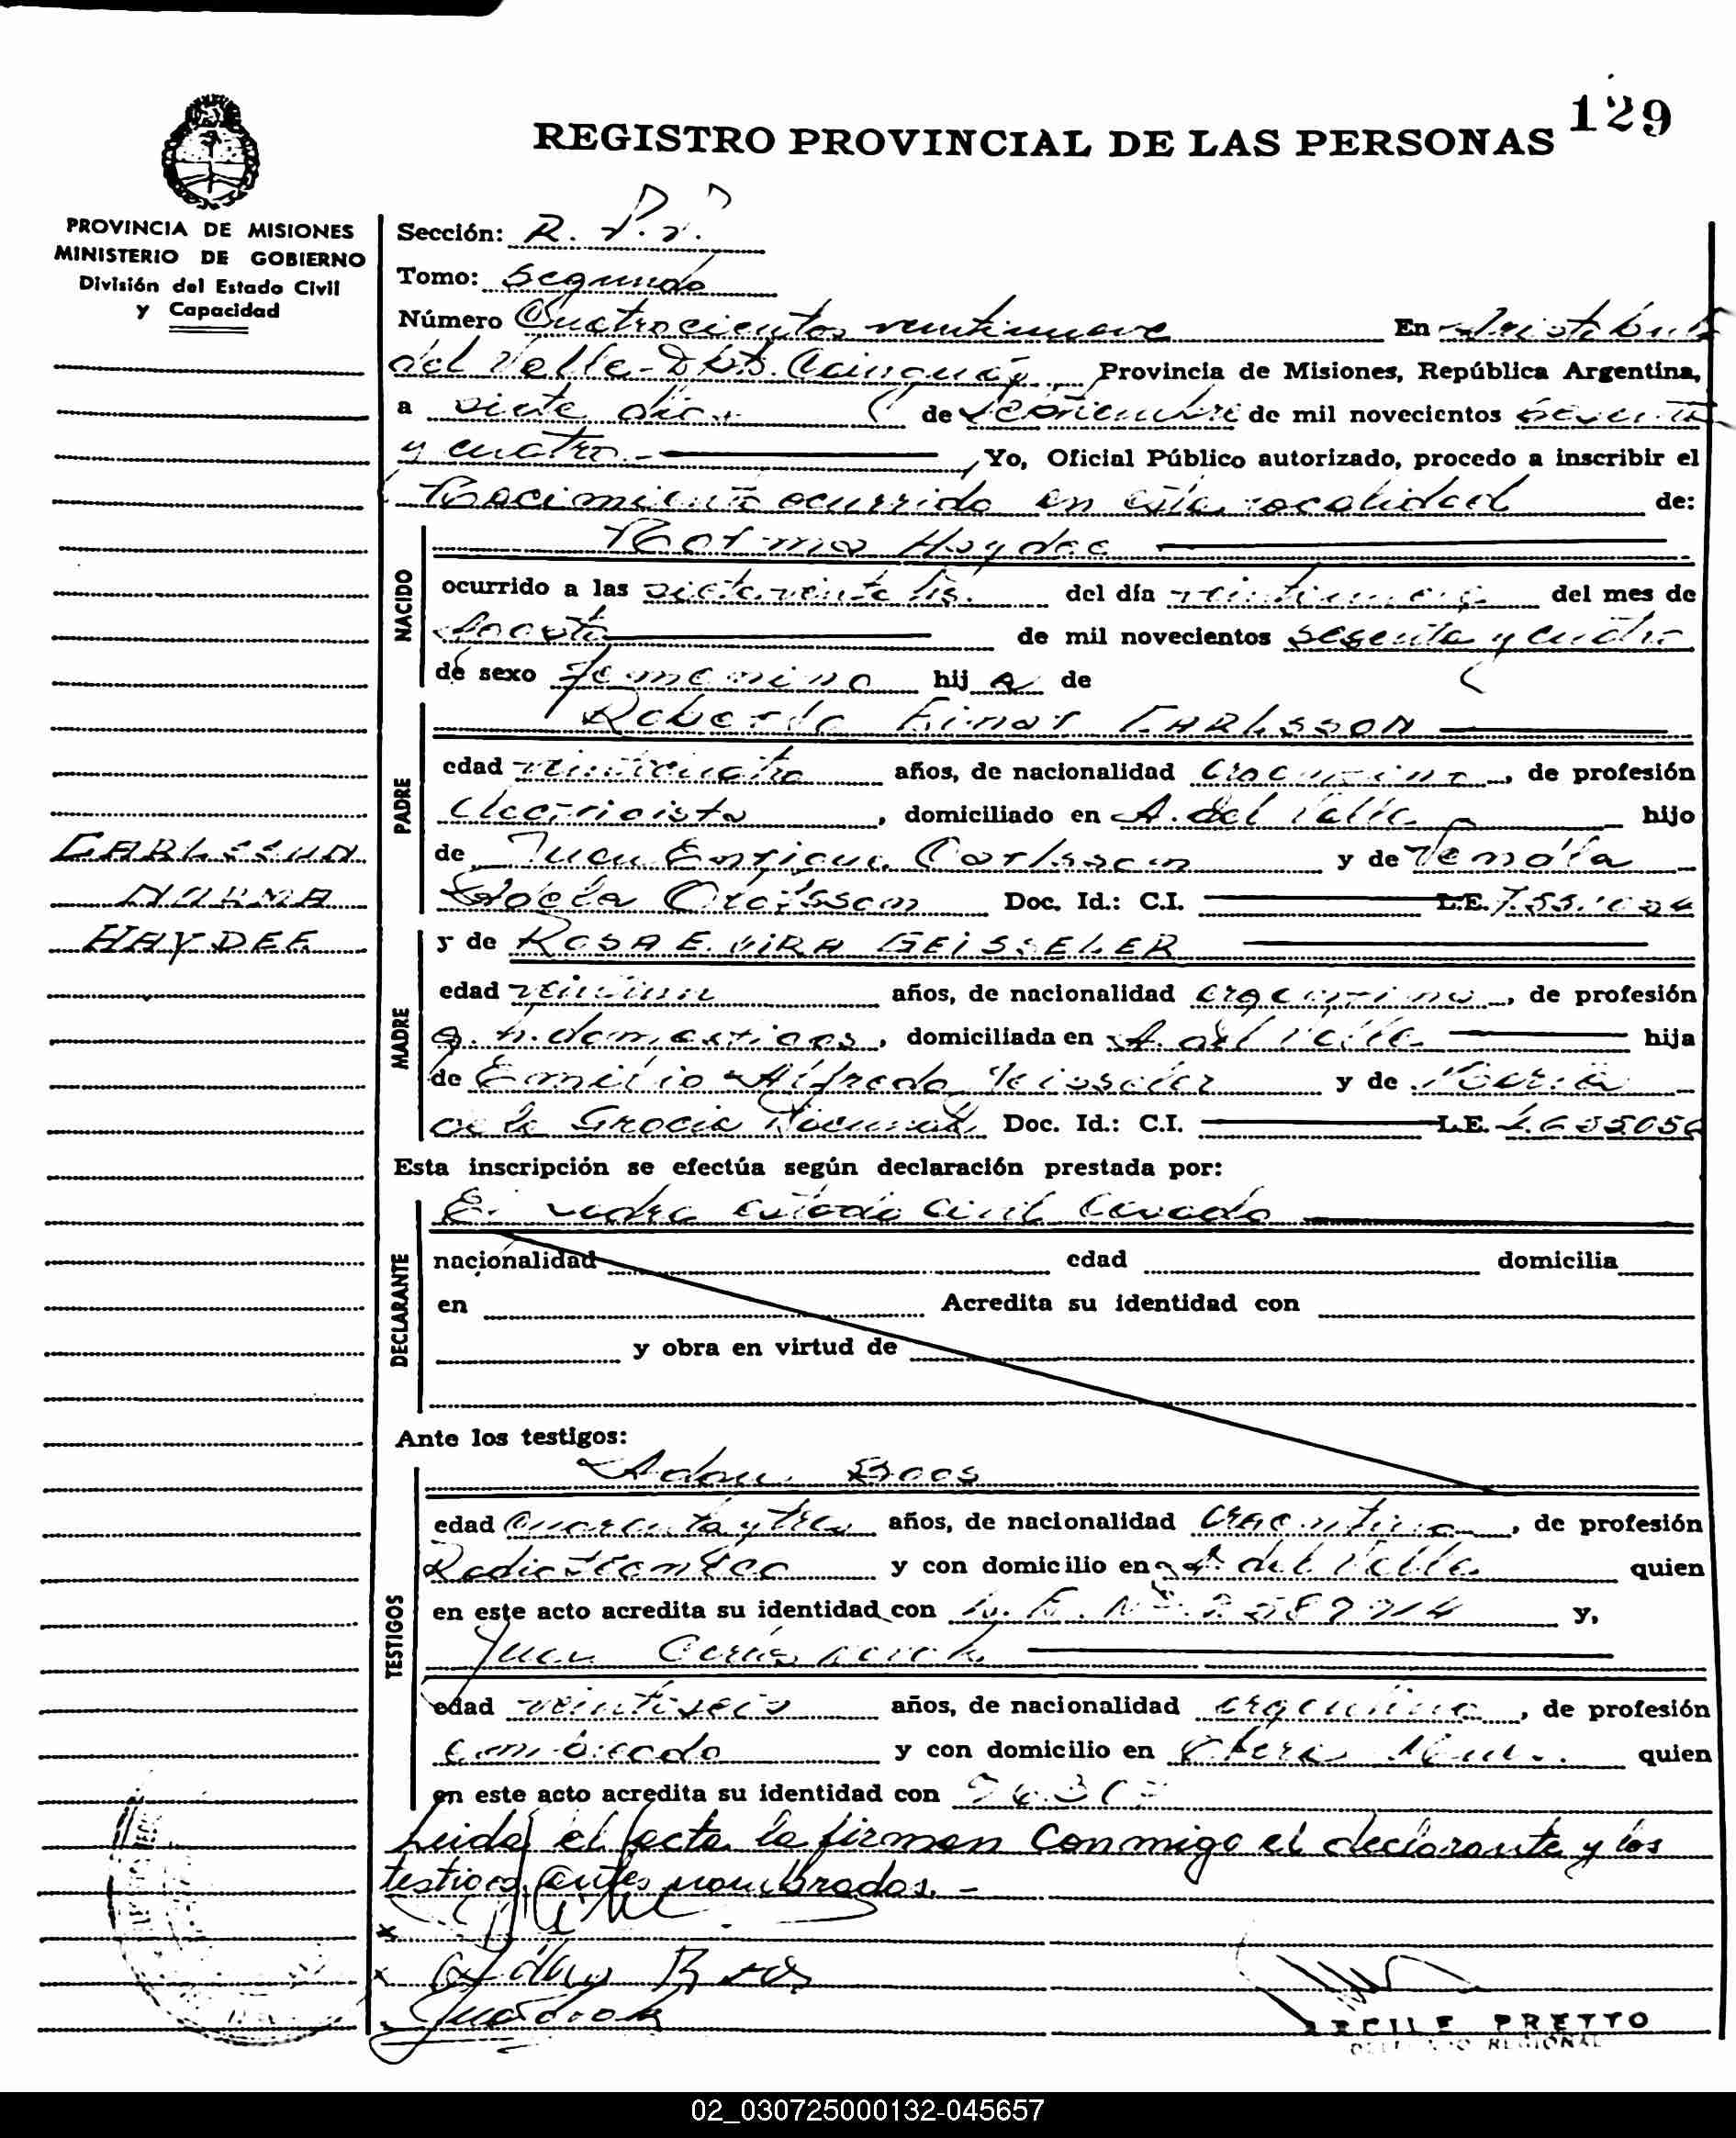 129
REGISTRO PROVINCIAL DE LAS PERSONAS
PROVINCIA DE MISIONES
MINISTERIO DE GOBIERNO
División del Estado Civil
y Capacidad
Sección: R.
Tomo: Segundo
Número Cuatrocientos veintinueve En Aristobulo
del Valle - Dpto. Cainguás, Provincia de Misiones, República Argentina,
a siete días de Septiembre de mil novecientos sesenta
y cuatro.- , Yo, Oficial Público autorizado, procedo a inscribir el
Nacimiento ocurrido en esta localidad de:
NACIDO
Norma Haydee
ocurrido a las siete veinte hs. del día veintinueve del mes de
Agosto de mil novecientos sesenta y cuatro
de sexo femenino hij a de
PADRE
Roberto Einar CARLSSON
edad veinticuatro años, de nacionalidad argentino, de profesión
electricista, domiciliado en A. del Valle hijo
de Juan Enrique Carlsson y de
Doc. Id.: C.I. L.E.
CARLSSON
NORMA
HAYDEE
MADRE
y de ROSA ELVIRA GEISSELER
edad años, de nacionalidad argentina, de profesión
q. h. domesticos, domiciliada en A. del Valle hija
de Emilio Alfredo Geisseler y de María
de la Gracia Doc. Id.: C.I. L.E.
Esta inscripción se efectúa según declaración prestada por:
DECLARANTE
El padre estado civil casado
nacionalidad edad domicilia
en Acredita su identidad con
y obra en virtud de
Ante los testigos:
TESTIGOS
Adan Boos
edad cuarenta y tres años, de nacionalidad argentino, de profesión
Radiotecnico y con domicilio en A. del Valle quien
en este acto acredita su identidad con L. E. Nº y,
Juan Carlos
edad veintiseis años, de nacionalidad argentino, de profesión
embicado y con domicilio en Obera quien
en este acto acredita su identidad con
Leida el acta la firman conmigo el declarante y los
testigos antes nombrados.-
Adan Boos
PRETTO
REGIONAL
02_030725000132-045657